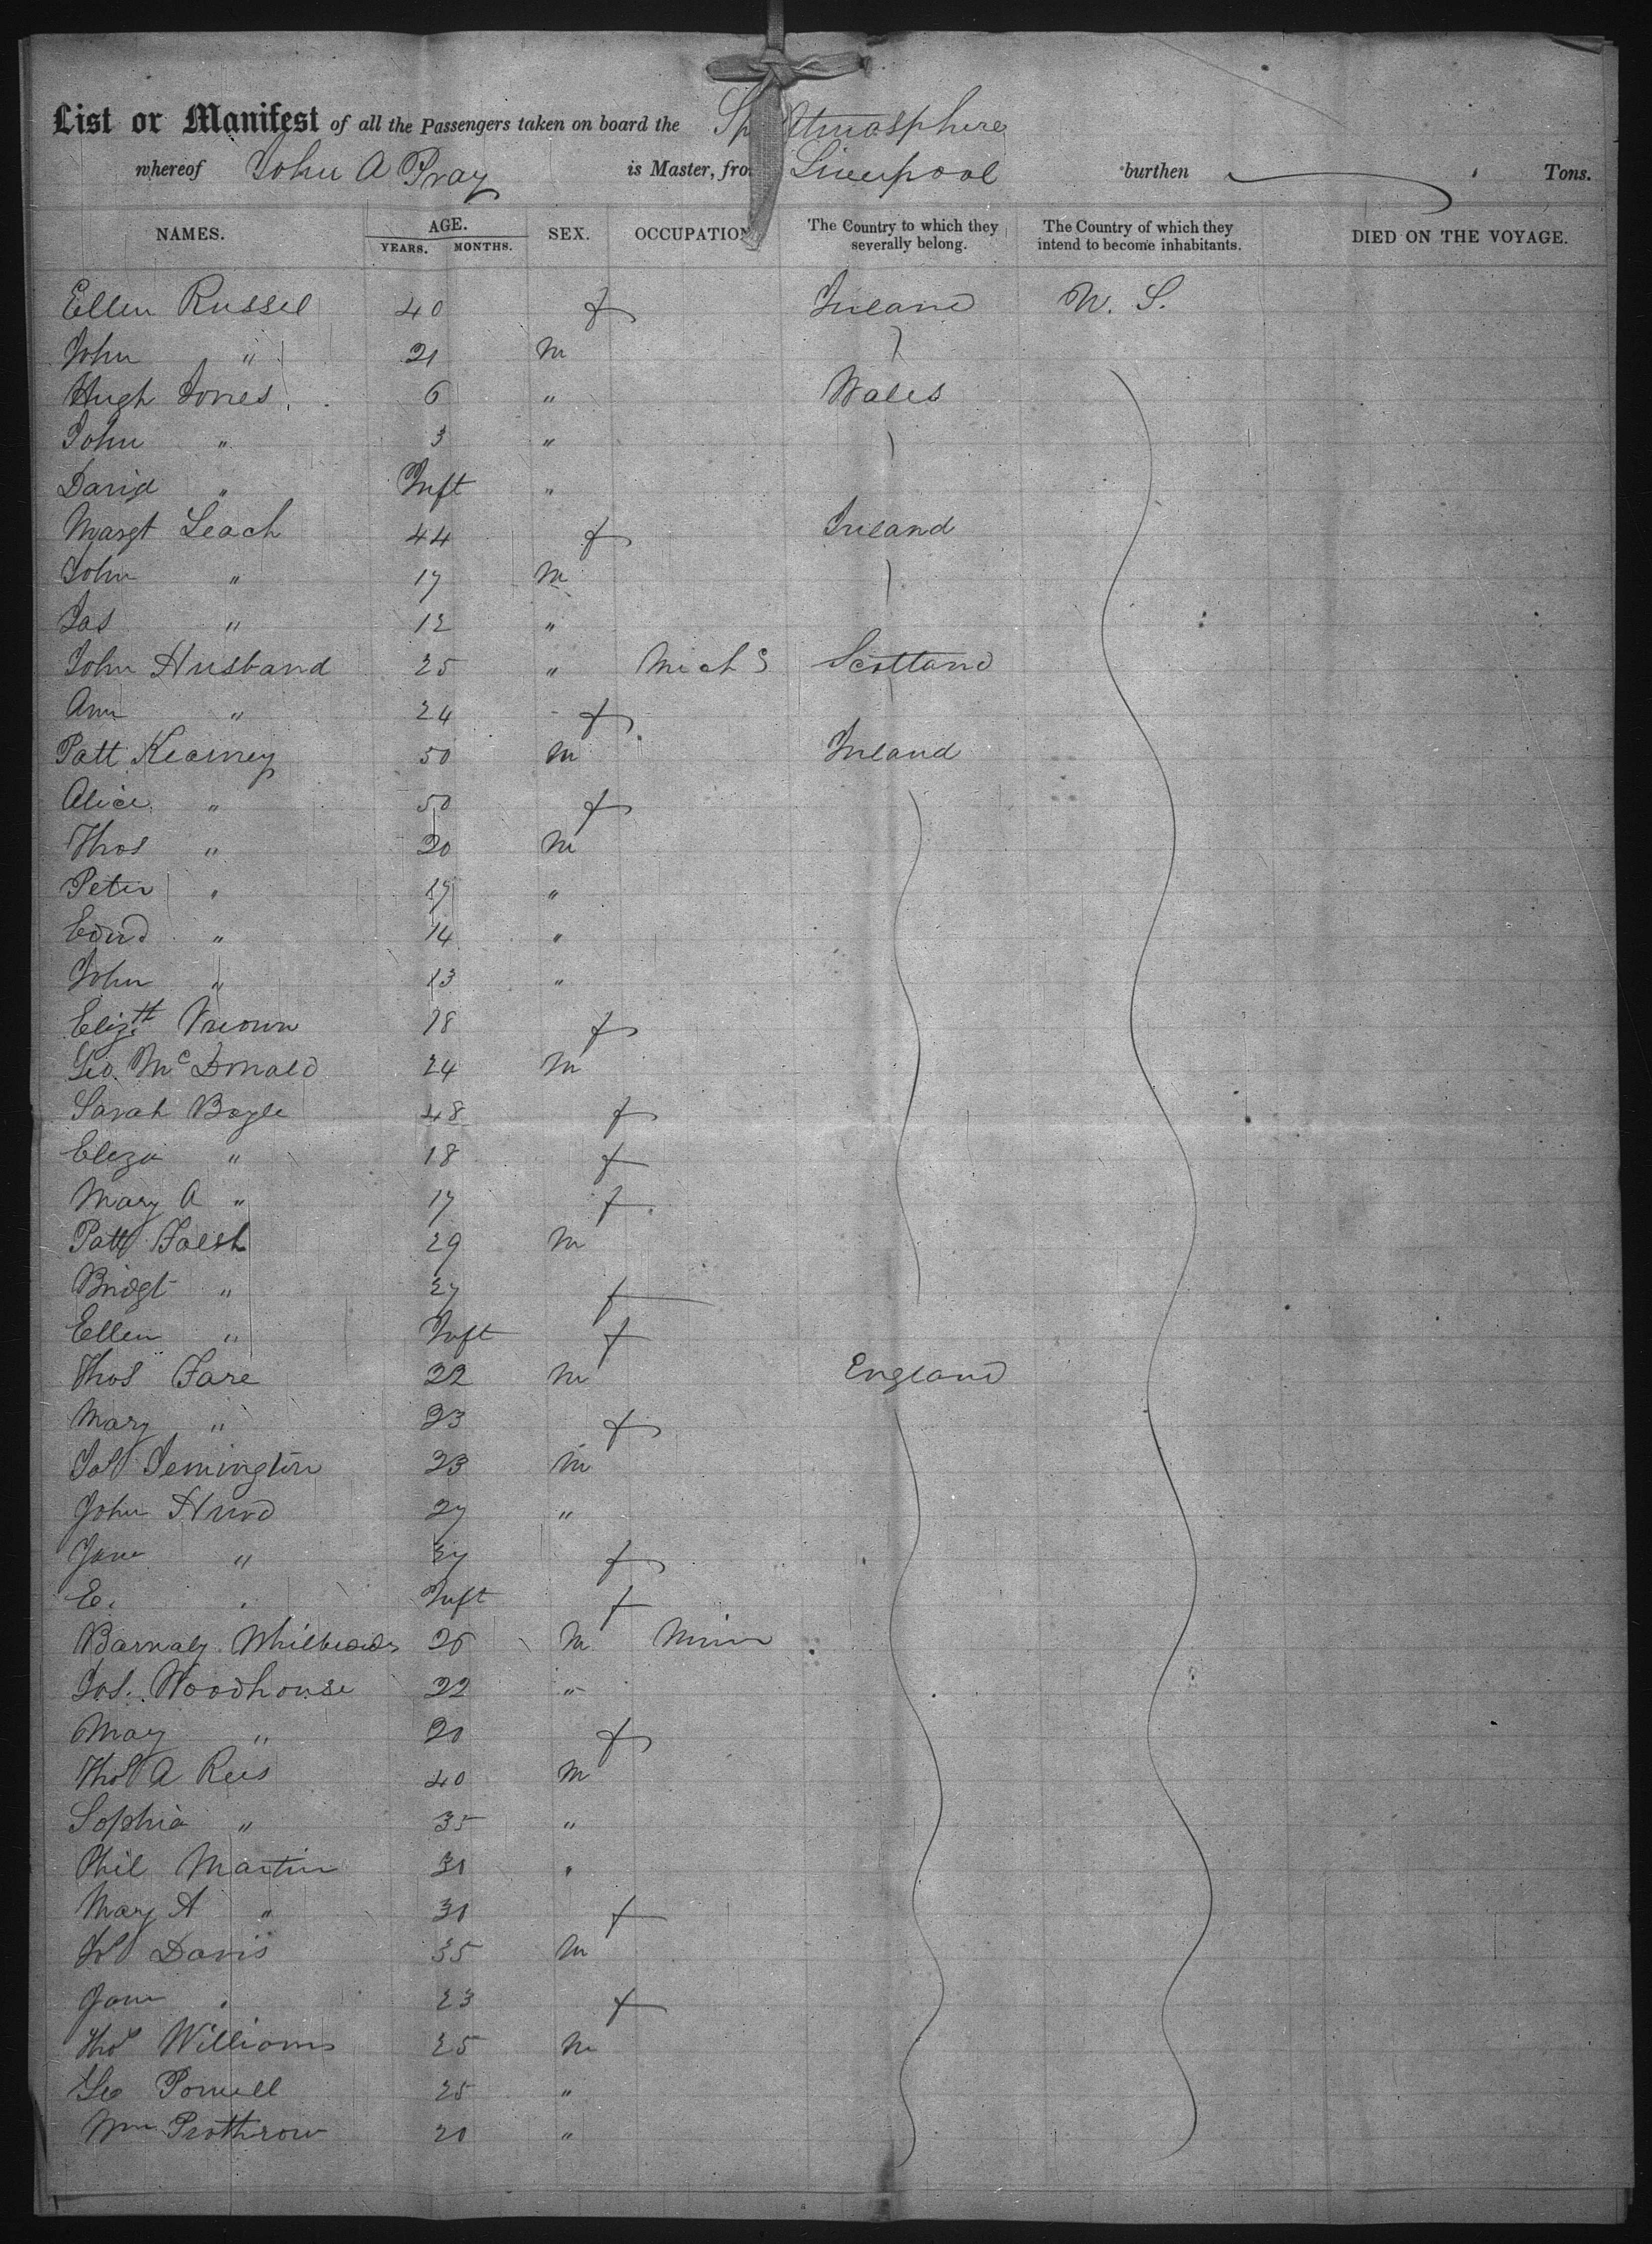 List or Manifest of all the Passengers taken on board the Sp Atmosphere
whereof John A Pray is Master, from Liverpool burthen Tons.
NAMES. AGE. YEARS. MONTHS. SEX. OCCUPATION The Country to which they severally belong. The Country of which they intend to become inhabitants. DIED ON THE VOYAGE.
Ellen Russel 40 f Ireland U. S.
John " 21 m
Hugh Jones 6 " Wales
John " 3 "
David " Inft "
Margt Leach 44 f Ireland
John " 17 m
Jas " 12 "
John Husband 25 " Mech Scotland
Ann " 24 f
Patt Kearney 50 m Ireland
Alice " 50 f
Thos " 20 m
Peter " 17 "
Edwd " 14 "
John " 13 "
Elizth 18 f
Geo. McDonald 24 m
Sarah Boyle 48 f
Eliza " 18 f
Mary A " 17 f
Patt 29 m
Bridgt " 27 f
Ellen " Inft f
Thos Fare 22 m England
Mary " 23 f
Jos 23 m
John Hurd 27 "
Jane " 27 f
E. " Inft f
Barnaby 26 m Miner
Jos. Woodhouse 22 "
Mary " 20 f
Thos A Rees 40 m
Sophia " 35 "
Phil Martin 31 "
Mary A " 31 f
Davis 35 m
Jane " 23 f
Thos Williams 25 m
Geo Powell 25 "
Wm Prothrow 20 "